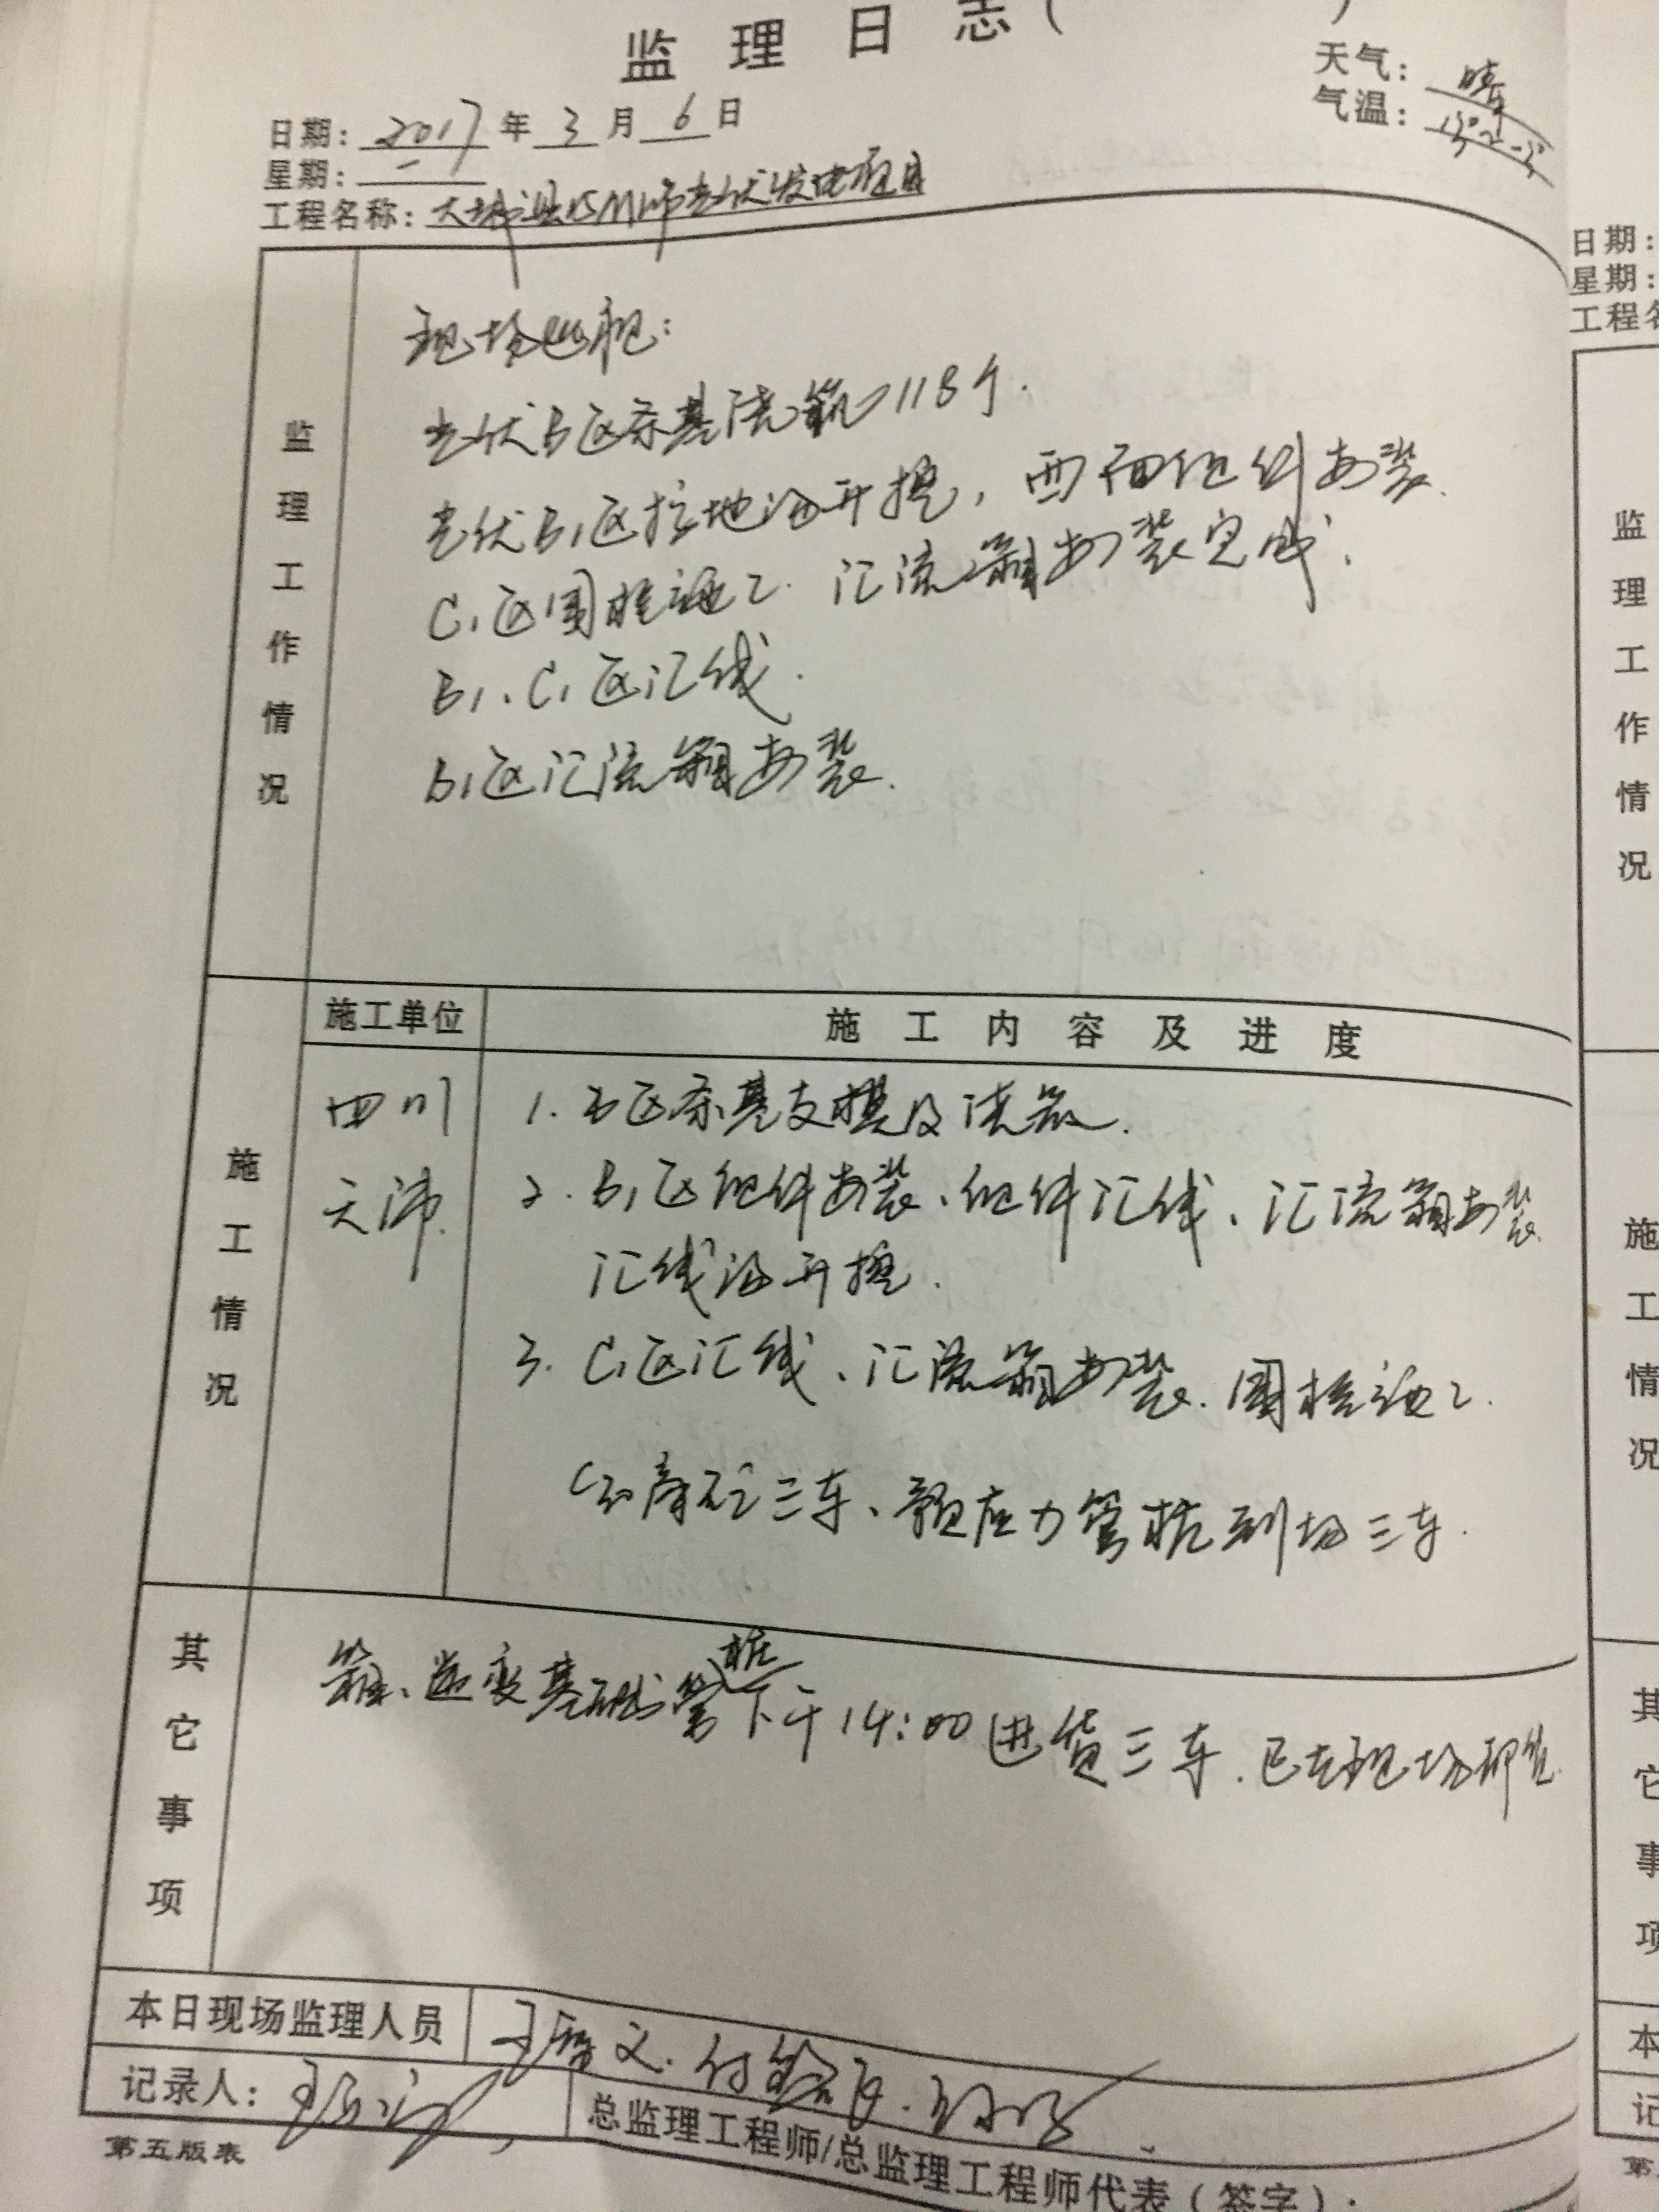 监理日志（ ）
天气：晴
气温：
日期：2017年3月6日
星期：一
工程名称：光伏发电项目
监理工作情况
现场巡视：
光伏B区条基浇筑118个.
光伏B1区接地沟开挖，西面组件安装.
C1区围栏施工. 汇流箱安装完成.
B1、C1区汇线.
B1区汇流箱安装.
施工情况
施工单位
施工内容及进度
四川
天沛.
1. B区条基支模及浇筑.
2. B1区组件安装、组件汇线、汇流箱安装
汇线沟开挖.
3. C1区汇线、汇流箱安装. 围栏施工.
三车、预应力管桩到场三车.
其它事项
箱、逆变基础管桩下午14:00进货三车. 已在现场卸货
本日现场监理人员
记录人：
总监理工程师/总监理工程师代表（签字）：
第五版表
日期：
星期：
工程名
监理工作情况
施工情况
其它事项
本
记
第